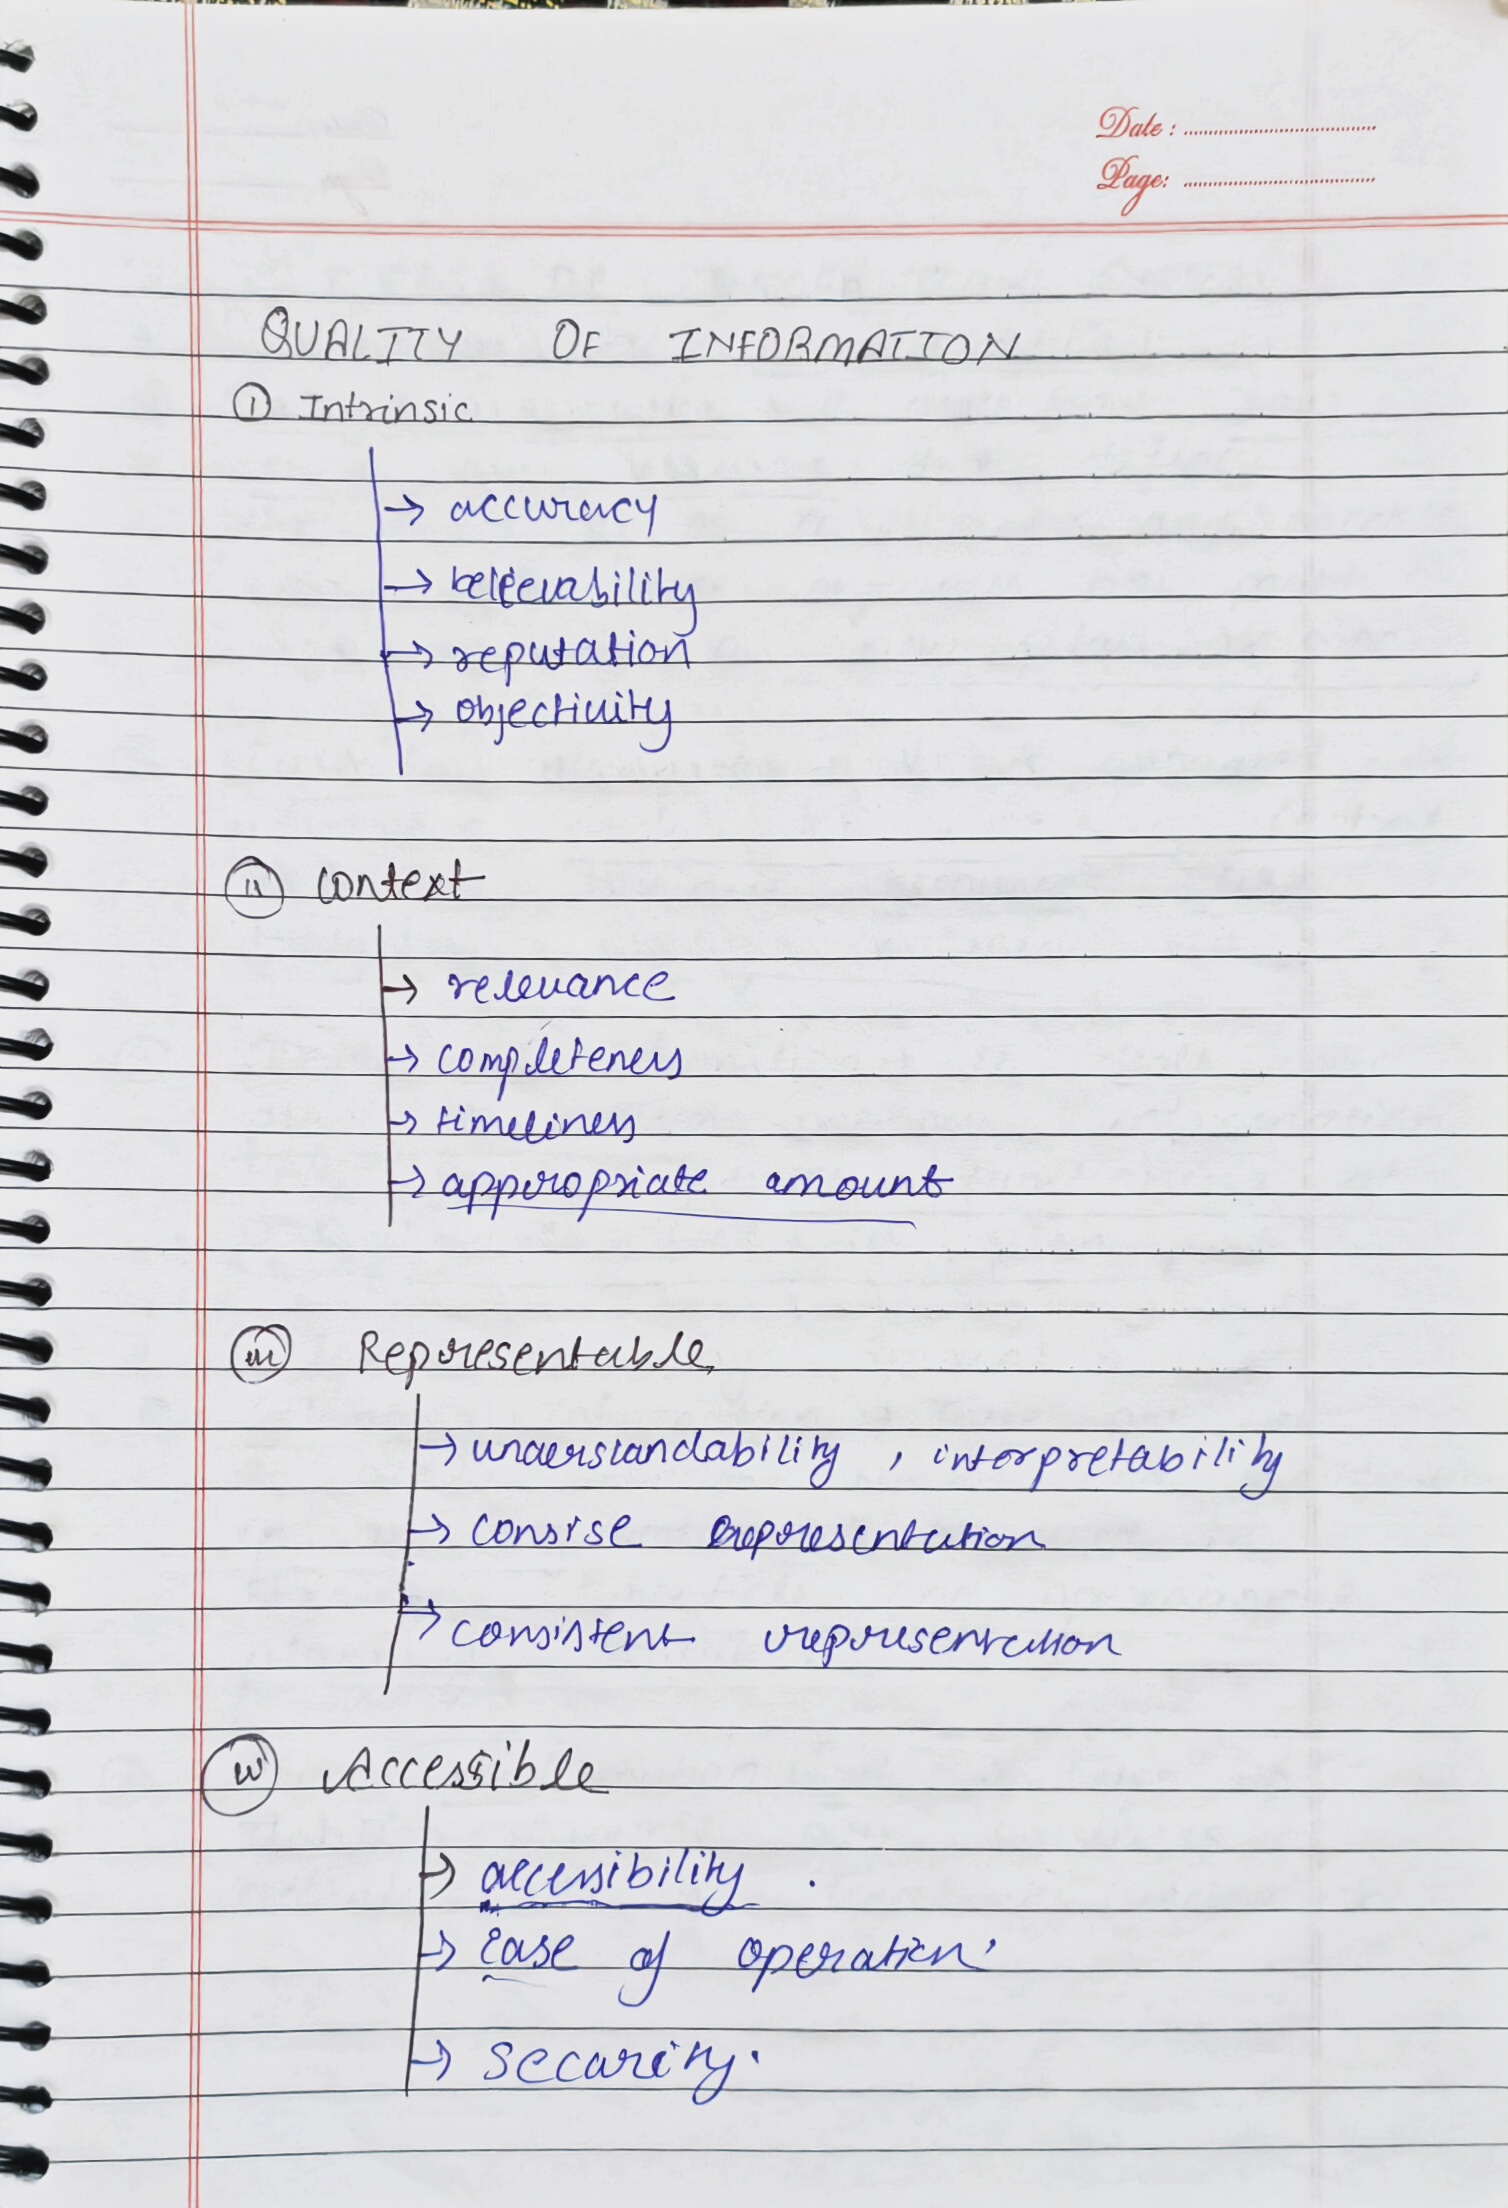 Date :
Page:
QUALITY OF INFORMATION
① Intrinsic
→ accuracy
→ believability
→ reputation
→ objectivity
ⅱ Context
→ relevance
→ completeness
→ timeliness
→ appropriate amount
ⅲ Representable
→ understandability , interpretability
→ consise representation
→ consistent representation
ⅳ Accessible
→ accessibility .
→ Ease of operation.
→ Security.